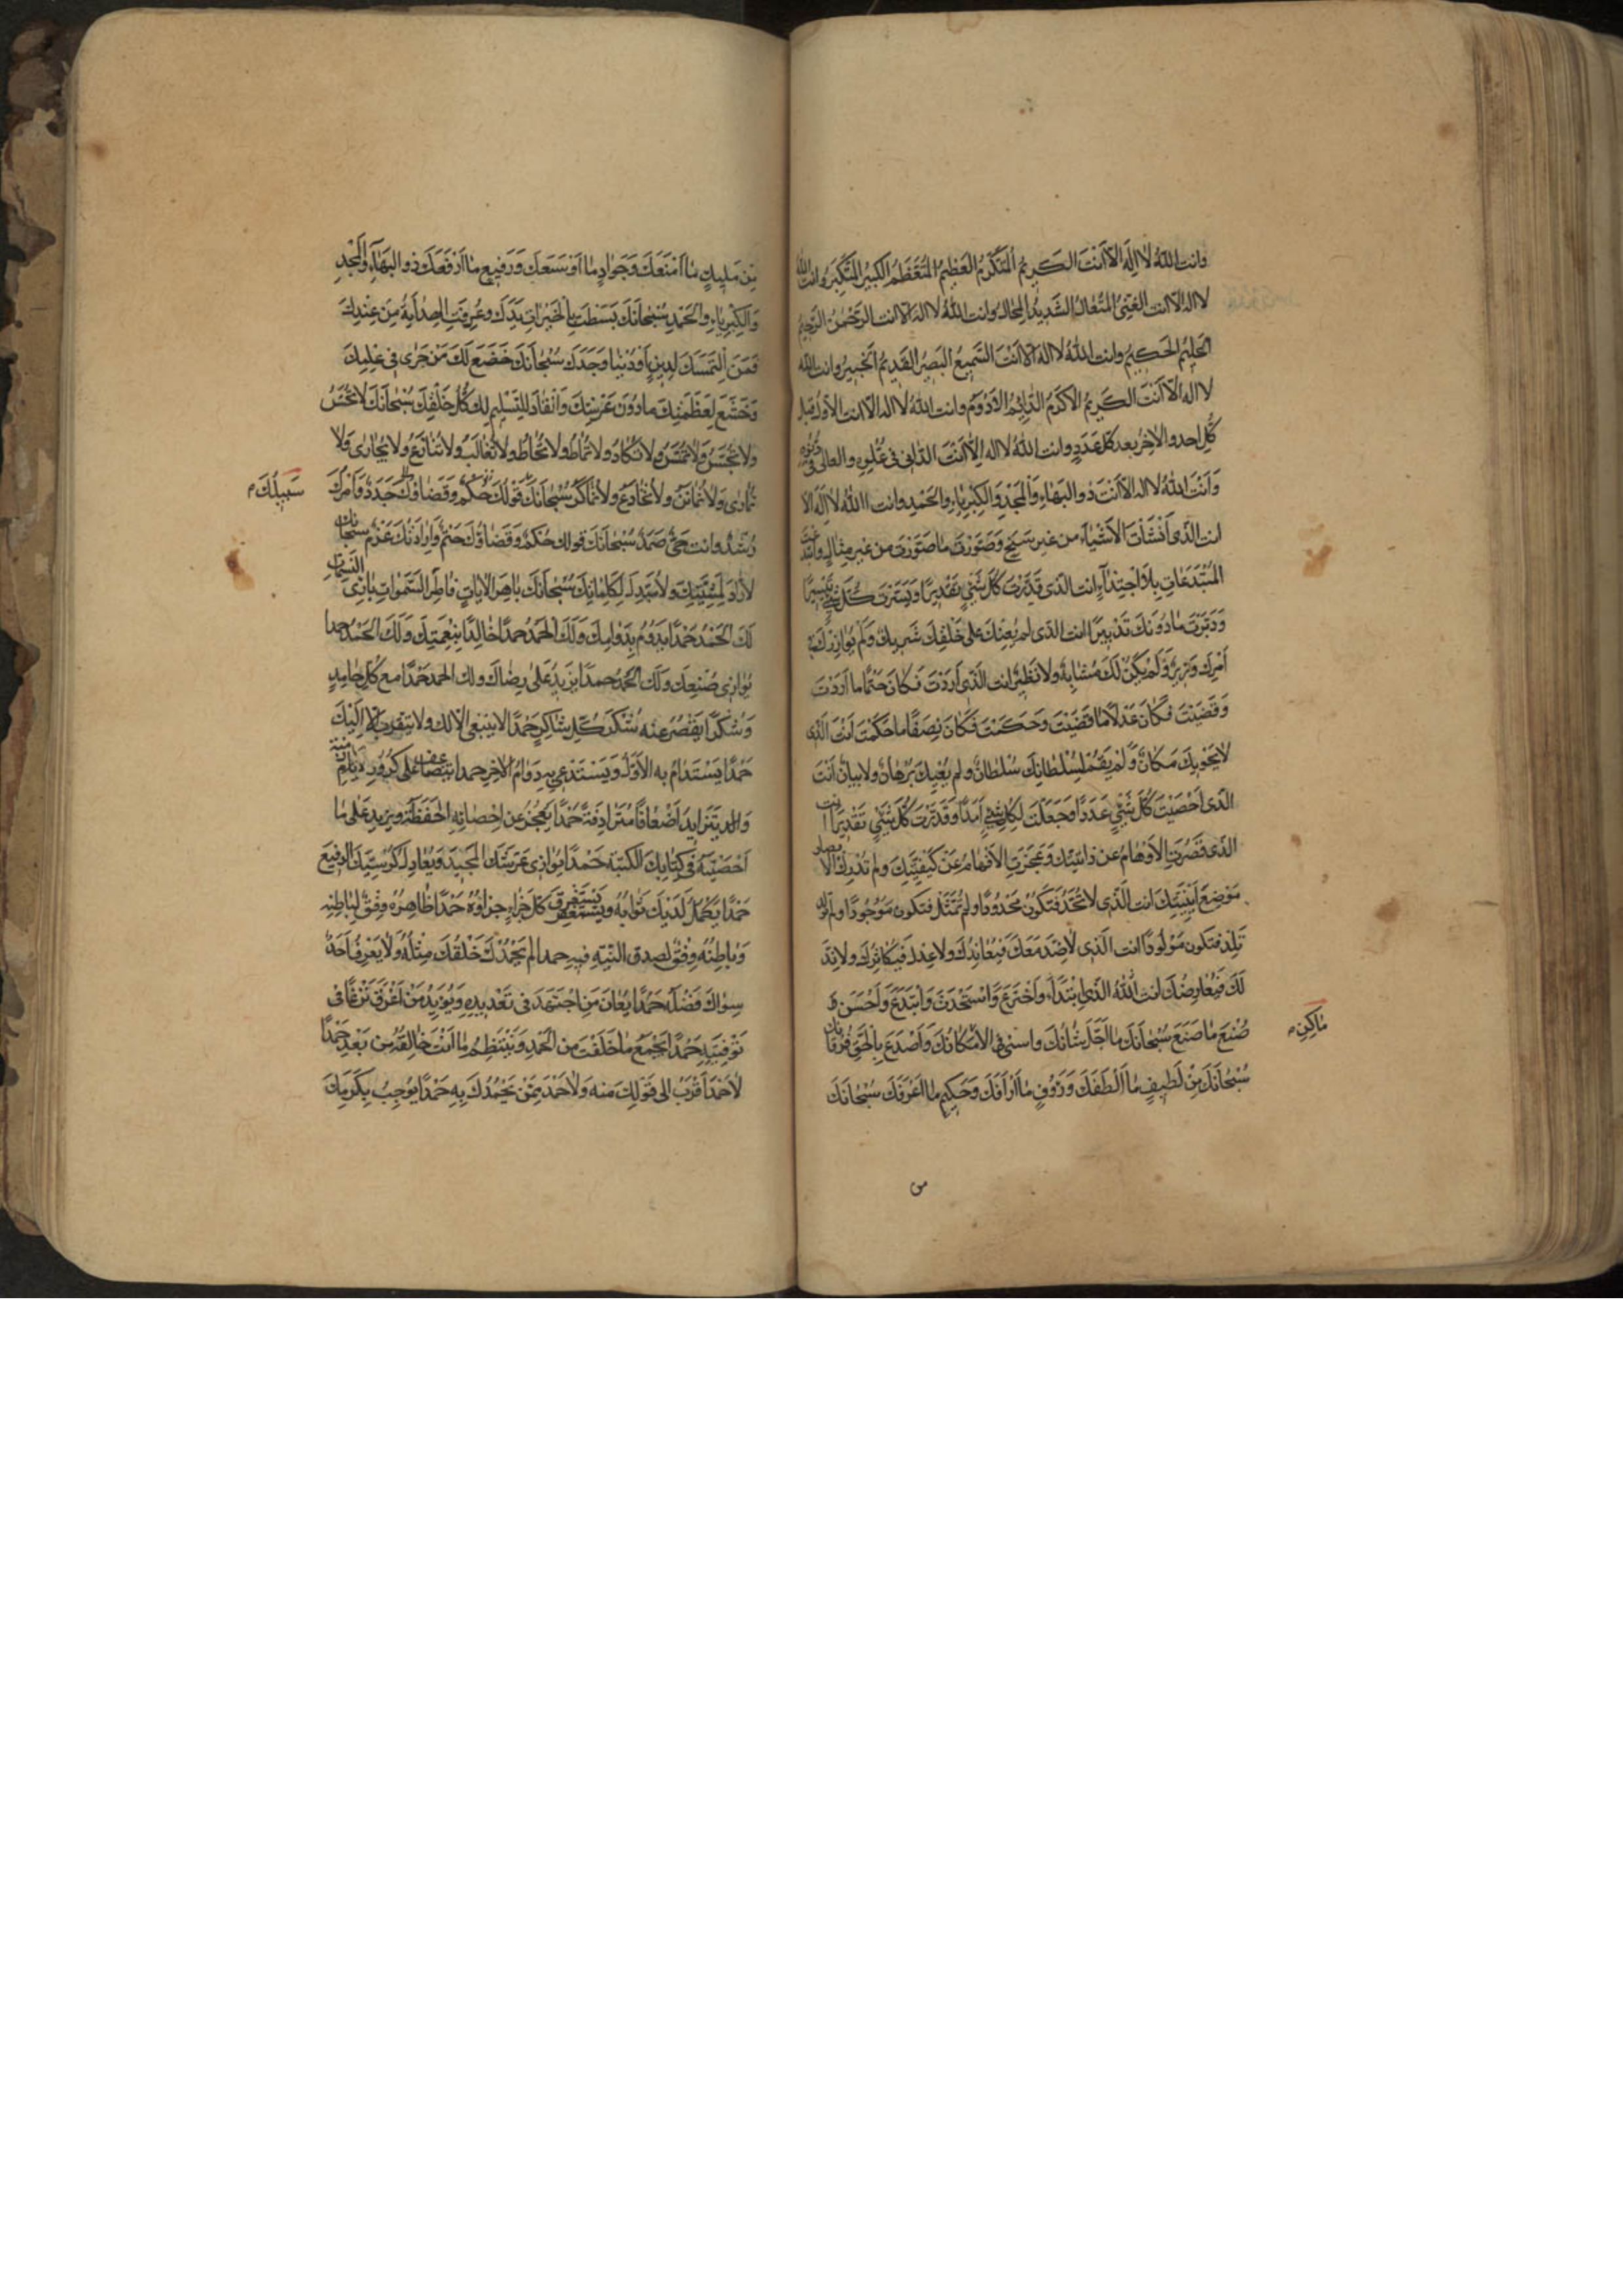 وانت اللهُ لا اله الا انت الكريم المتكرم العظيم المتعظم الكبير المتكبر وانت الله
لا اله الا انت الغنى المتعال الشديد المحال وانت الله لا اله الا انت الرحمن الرحيم
الحليم الحكيم وانت الله لا اله الا انت السميع البصير القديم الخبير وانت الله
لا اله الا انت الكريم الاكرم الدائم الادوم وانت الله لا اله الا انت الاول قبل
كل احد والاخر بعد كل عدد وانت الله لا اله الا انت الدانى فى علوه والعالى فى دنوه
وانت الله لا اله الا انت ذو البهاء والمجد والكبرياء والحمد وانت الله لا اله الا
انت الذى انشات الاشياء من غير سنخ وصورت ما صورت من غير مثال وابتدعت
المبتدعات بلا احتذاء انت الذى قدرت كل شىء تقديرا ويسرت كل شىء تيسيرا
ودبرت ما دونك تدبيرا انت الذى لم يعنك على خلقك شريك ولم يوازرك فى
امرك وزير ولم يكن لك مشابه ولا نظير انت الذى اردت فكان حتما ما اردت
وقضيت فكان عدلا ما قضيت وحكمت فكان نصفا ما حكمت انت الذى
لا يحويك مكان ولم يقم لسلطانك سلطان ولم يعيك برهان ولا بيان انت
الذى احصيت كل شىء عددا وجعلت لكل شىء امدا وقدرت كل شىء تقديرا انت
الذى قصرت الاوهام عن ذاتيتك وعجزت الافهام عن كيفيتك ولم تدرك الابصار
موضع اينيتك انت الذى لا تحد فتكون محدودا ولم تمثل فتكون موجودا ولم
تلد فتكون مولودا انت الذى لا ضد معك فيعاندك ولا عدل فيكاثرك ولا ند
لك فيعارضك انت الله الذى ابتدا واخترع واستحدث وابتدع واحسن
صنع ما صنع سبحانك ما اجل شانك واسنى فى الامكانك واصدع بالحق فرقانك
ماكن
سبحانك من لطيف ما الطفك ورؤف ما ارافك وحكيم ما اعرفك سبحانك
من
من مليك ما امنعك وجواد ما اوسعك ورفيع ما ارفعك ذو البهاء والمجد
والكبرياء والحمد سبحانك بسطت بالخيرات يدك وعرفت الهداية من عندك
فمن التمسك لدين او دنيا وجدك سبحانك خضع لك من جرى فى علمك
وخشع لعظمتك ما دون عرشك وانقاد للتسليم لك كل خلقك سبحانك لا تحس
ولا تجس ولا تمس ولا تكاد ولا تماط ولا تحاط ولا تغالب ولا تنازع ولا تجارى ولا
تمارى ولا تخادع ولا تماكر سبحانك قولك حكم وقضاؤك جدد وامرك
سبيلك
رشد وانت حى صمد سبحانك قولك حكم وقضاؤك حتم وارادتك عزم سبحانك
لا راد لمشيتك ولا مبدل لكلماتك سبحانك باهر الايات فاطر السموات بارئ النسمات
لك الحمد حمدا يدوم بدوامك ولك الحمد حمدا خالدا بنعمتك ولك الحمد حمدا
يوازى صنعك ولك الحمد حمدا يزيد على رضاك ولك الحمد حمدا مع كل حامد
وشكرا يقصر عنه شكر كل شاكر حمدا لا ينبغى الا لك ولا يتقرب به الا اليك
حمدا يستدام به الاول ويستدعى به دوام الاخر حمدا يتضاعف على كرور الازمنة
والايام يتزايد اضعافا مترادفة حمدا يعجز عن احصائه الحفظة ويزيد على ما
احصته فى كتابك الكتبة حمدا يوازى عرشك المجيد ويعادل كرسيك الرفيع
حمدا يكمل لديك ثوابه ويستغرق كل جزاء جزاؤه حمدا ظاهره وفق لباطنه
وباطنه وفق لصدق النية فيه حمدا لم يحمدك خلقك مثله ولا يعرف احد
سواك فضله حمدا يعان من اجتهد فى تعديده ويؤيد من اغرق نزعا فى
توفيته حمدا يجمع ما خلقت من الحمد وينتظم ما انت خالقه من بعد حمدا
لا حمد اقرب الى قولك منه ولا احمد ممن يحمدك به حمدا يوجب بكرمك